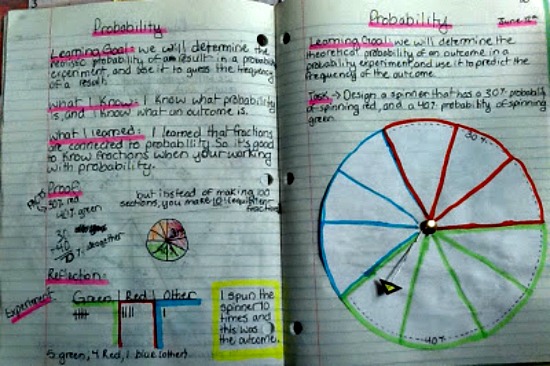 3
Probability
Learning Goal: we will determine the
realistic probability of an result in a probability
experiment, and use it to guess the frequency
of a result.
What I Know: I know what probability
is, and I know what an outcome is.
What I learned: I learned that fractions
is connected to probability. So it's good
to know fractions when your working
with probability.
Proof:
30% red
40% green
30
+40
70% altogether
but instead of making 100
sections, you make 10
Reflection:
Experiment
Green Red Other
5 green, 4 Red, 1 blue (other)
I spun the
spinner 10
times and
this was
the outcome.
Probability
June
Learning Goal: we will determine the
theoretical probability of an outcome in a
probability experiment and use it to predict the
frequency of the outcome.
Task → Design a spinner that has a 30% probability
of spinning red, and a 40% probability of spinning
green.
30%
40%